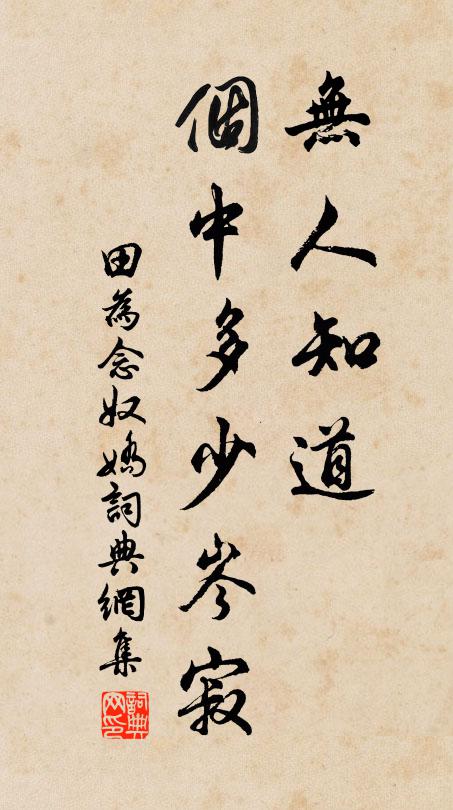 無人知道
個中多少岑寂
田為念奴嬌詞典網集
詞典网印